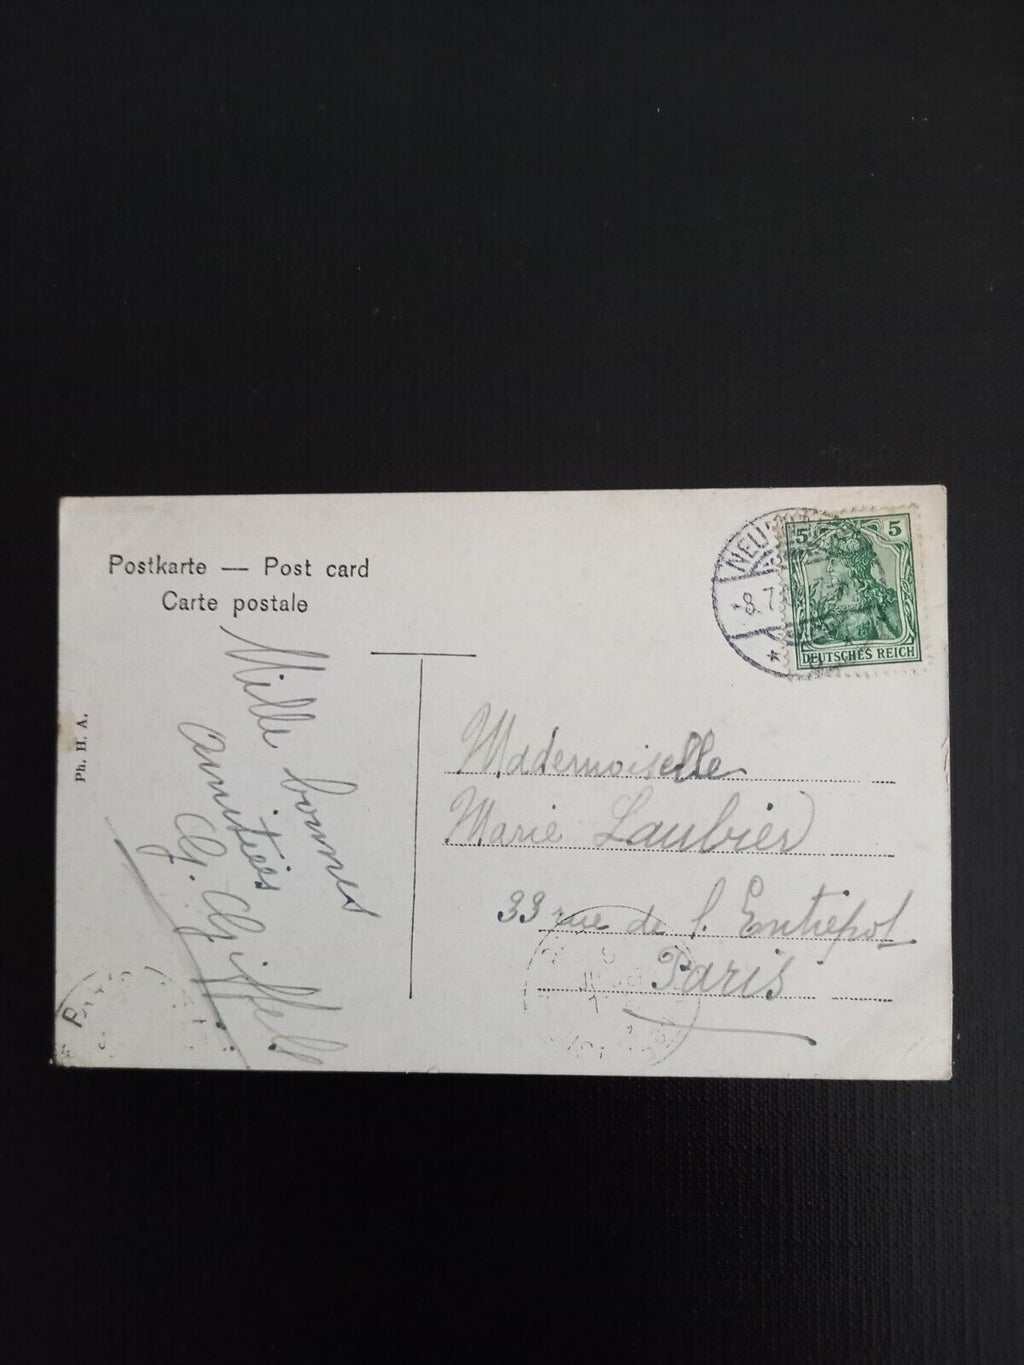 Postkarte — Post card
Carte postale
Ph. H. A.
Mille bonnes
amitiés
G. Griffell
NEU
8.7
5 5
DEUTSCHES REICH
Mademoiselle
Marie Laubier
33 rue de l. Entrepot
Paris